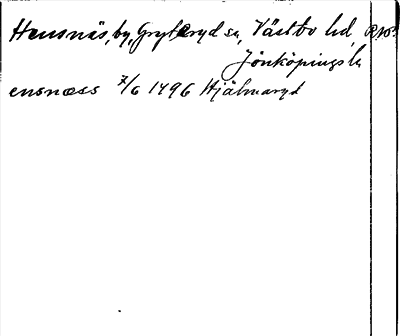 Hensnäs, by, Gryteryd sn, Västbo hd
Jönköpings län
ensnæss 7/6 1496 Hjälmaryd